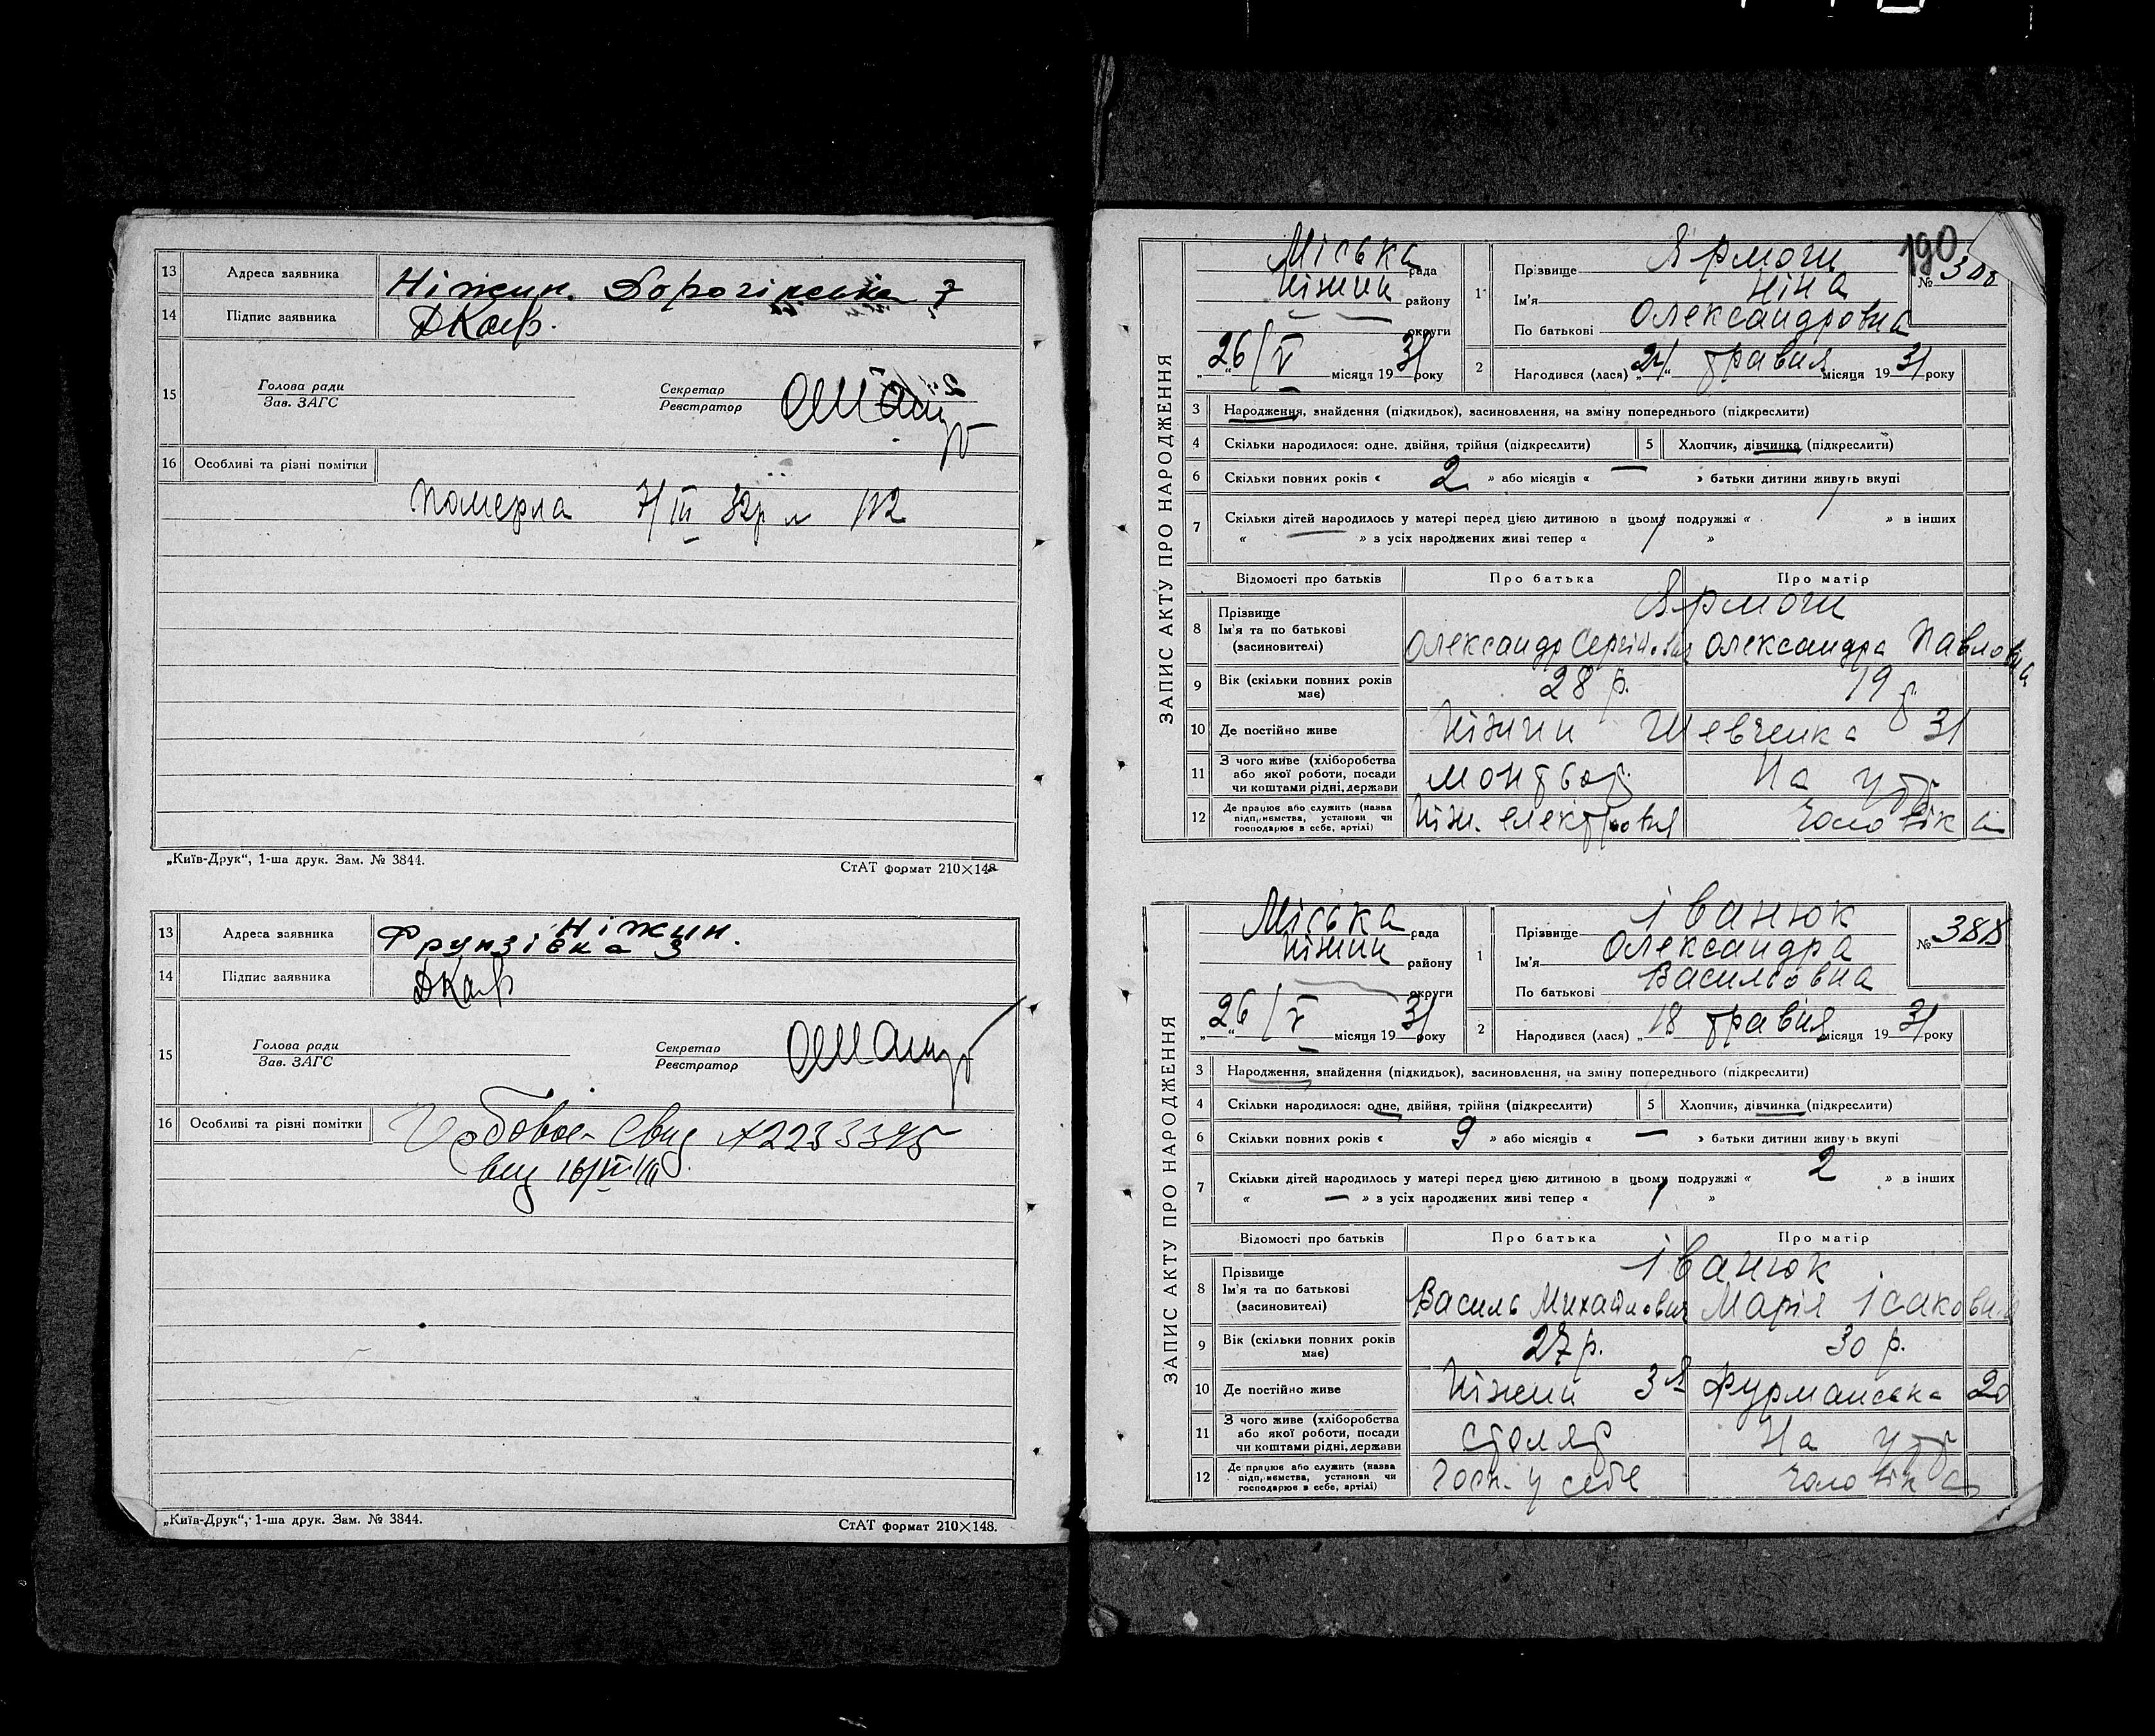 13 Адреса заявника Ніжин. 7
14 Підпис заявника ДКаф.
15 Голова ради
Зав. ЗАГС
Секретар
Реєстратор
16 Особливі та різні помітки
Померла 7/III 32р
„Київ-Друк“, 1-ша друк. Зам. № 3844. СтАТ формат 210×148
13 Адреса заявника Ніжин.
Фрунзівка 3
14 Підпис заявника ДКаф
15 Голова ради
Зав. ЗАГС
Секретар
Реєстратор
16 Особливі та різні помітки
„Київ-Друк“, 1-ша друк. Зам. № 3844. СтАТ формат 210×148.
190
ЗАПИС АКТУ ПРО НАРОДЖЕННЯ
Міська рада
Ніжин району
округи
„26“ V місяця 1931 року
1 Прізвище Ярмоги
Ім'я Ніна
По батькові Олександровна
№
2 Народився (лася) „24“ травня місяця 1931 року
3 Народження, знайдення (підкидьок), засиновлення, на зміну попереднього (підкреслити)
4 Скільки народилося: одне, двійня, трійня (підкреслити) 5 Хлопчик, дівчинка (підкреслити)
6 Скільки повних років « 2 » або місяців « — » батьки дитини живуть вкупі
7 Скільки дітей народилось у матері перед цією дитиною в цьому подружжі « / » в інших
« — » з усіх народжених живі тепер « / »
Відомості про батьків Про батька Про матір
8 Прізвище Ярмоги
Ім'я та по батькові Олександр Сергійович Олександра Павловна
(засиновителі)
9 Вік (скільки повних років має) 28 р. 19 р.
10 Де постійно живе Ніжин Шевченка 31
11 З чого живе (хліборобства або якої роботи, посади чи коштами рідні, держави монтьор На утр
12 Де працює або служить (назва підприємства, установи чи господарює в себе, артілі) Ніжн. електровня чоловіка
ЗАПИС АКТУ ПРО НАРОДЖЕННЯ
Міська рада
Ніжин району
округи
„26“ V місяця 1931 року
1 Прізвище Іванюк
Ім'я Олександра
По батькові Васильовна
№ 388
2 Народився (лася) „18 травня місяця 1931 року
3 Народження, знайдення (підкидьок), засиновлення, на зміну попереднього (підкреслити)
4 Скільки народилося: одне, двійня, трійня (підкреслити) 5 Хлопчик, дівчинка (підкреслити)
6 Скільки повних років « 9 » або місяців « — » батьки дитини живуть вкупі
7 Скільки дітей народилось у матері перед цією дитиною в цьому подружжі « 2 » в інших
« — » з усіх народжених живі тепер « 1 »
Відомості про батьків Про батька Про матір
8 Прізвище Іванюк
Ім'я та по батькові Василь Михайлович Марія Ісаковна
(засиновителі)
9 Вік (скільки повних років має) 27 р. 30 р.
10 Де постійно живе Ніжин 3 Фурманська 20
11 З чого живе (хліборобства або якої роботи, посади чи коштами рідні, держави столяр На утр
12 Де працює або служить (назва підприємства, установи чи господарює в себе, артілі) Госп. у себе чоловіка